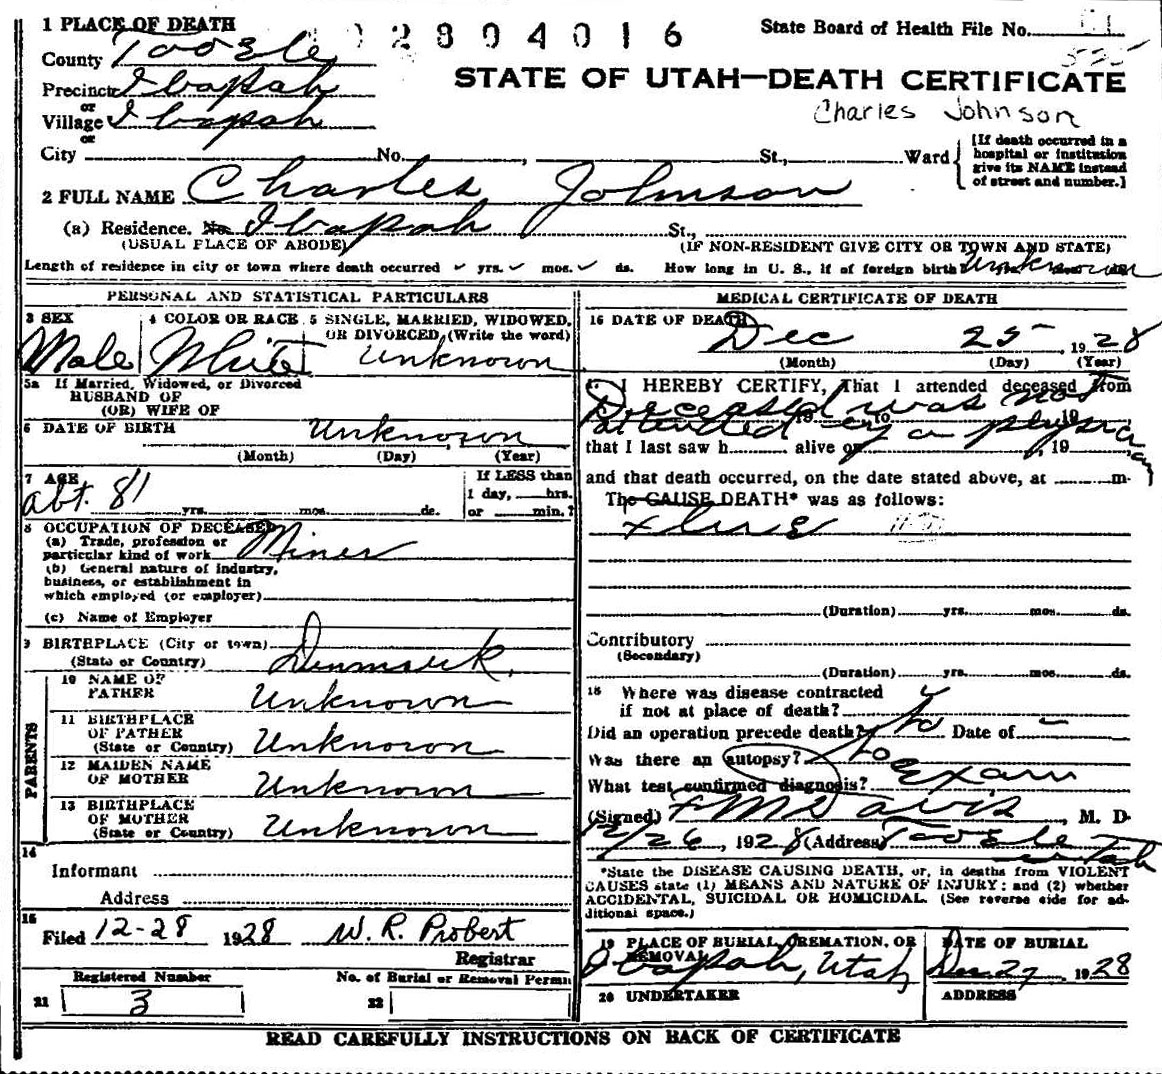 1 PLACE OF DEATH
02804016
State Board of Health File No.
County Tooele
525
STATE OF UTAH—DEATH CERTIFICATE
Precinct Ibapah
or
Village Ibapah
or
Charles Johnson
City No. , St., Ward
[If death occurred in a hospital or institution give its NAME instead of street and number.]
2 FULL NAME Charles Johnson
(a) Residence. No. Ibapah St.,
(USUAL PLACE OF ABODE) (IF NON-RESIDENT GIVE CITY OR TOWN AND STATE)
Length of residence in city or town where death occurred yrs. mos. ds. How long in U. S., if of foreign birth Unknown
PERSONAL AND STATISTICAL PARTICULARS
3 SEX
Male
4 COLOR OR RACE
White
5 SINGLE, MARRIED, WIDOWED, OR DIVORCED, (Write the word)
Unknown
5a If Married, Widowed, or Divorced
HUSBAND OF
(OR) WIFE OF
6 DATE OF BIRTH Unknown
(Month) (Day) (Year)
7 AGE
abt. 81 yrs. mos. ds.
If LESS than
1 day, hrs.
or min.?
8 OCCUPATION OF DECEASED
(a) Trade, profession or
particular kind of work Miner
(b) General nature of industry,
business, or establishment in
which employed (or employer)
(c) Name of Employer
9 BIRTHPLACE (City or town)
(State or Country) Denmark
PARENTS
10 NAME OF
FATHER Unknown
11 BIRTHPLACE
OF FATHER
(State or Country) Unknown
12 MAIDEN NAME
OF MOTHER Unknown
13 BIRTHPLACE
OF MOTHER
(State or Country) Unknown
14
Informant
Address
15
Filed 12-28 1928 W. R. Probert
Registrar
Registered Number No. of Burial or Removal Permit
21 3 22
MEDICAL CERTIFICATE OF DEATH
16 DATE OF DEATH
Dec 25 1928
(Month) (Day) (Year)
17 I HEREBY CERTIFY, That I attended deceased from
Deceased was not
19 to 19
attended by a physician
that I last saw h alive on , 19
and that death occurred, on the date stated above, at m.
The CAUSE DEATH* was as follows:
Flue
(Duration) yrs. mos. ds.
Contributory
(Secondary)
(Duration) yrs. mos. ds.
18 Where was disease contracted
if not at place of death?
Did an operation precede death? No Date of
Was there an autopsy? No
What test confirmed diagnosis? Exam
(Signed) F M Davis, M. D.
12/26, 1928 (Address) Tooele
Utah
*State the DISEASE CAUSING DEATH, or, in deaths from VIOLENT
CAUSES state (1) MEANS AND NATURE OF INJURY; and (2) whether
ACCIDENTAL, SUICIDAL OR HOMICIDAL. (See reverse side for ad-
ditional space.)
19 PLACE OF BURIAL, CREMATION, OR
REMOVAL
Ibapah, Utah
DATE OF BURIAL
Dec. 27 1928
20 UNDERTAKER ADDRESS
READ CAREFULLY INSTRUCTIONS ON BACK OF CERTIFICATE